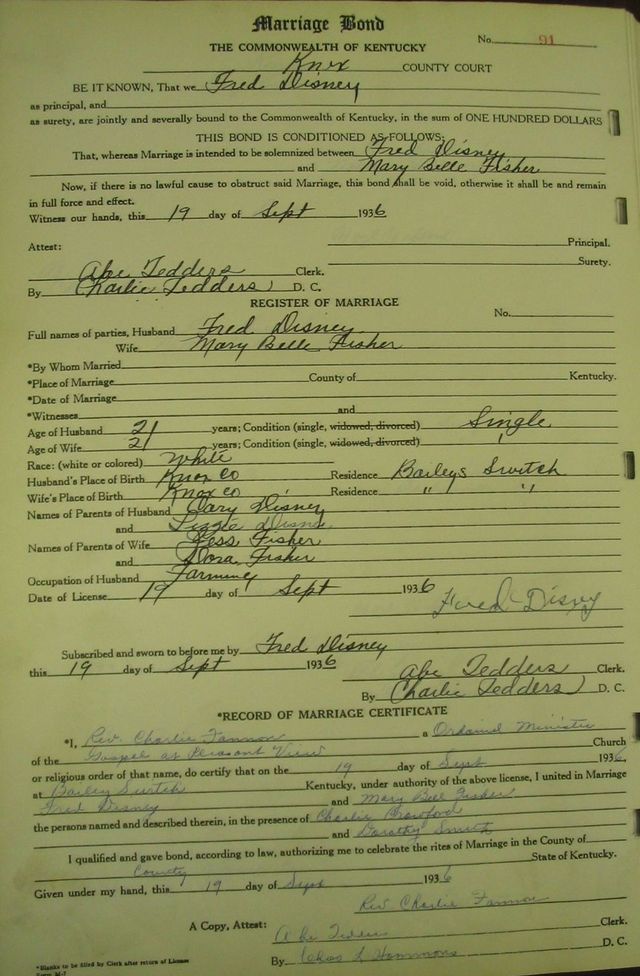 Marriage Bond
No. 91
THE COMMONWEALTH OF KENTUCKY
Knox COUNTY COURT
BE IT KNOWN, That we Fred Disney
as principal, and
as surety, are jointly and severally bound to the Commonwealth of Kentucky, in the sum of ONE HUNDRED DOLLARS
THIS BOND IS CONDITIONED AS FOLLOWS:
That, whereas Marriage is intended to be solemnized between Fred Disney
and Mary Belle Fisher
Now, if there is no lawful cause to obstruct said Marriage, this bond shall be void, otherwise it shall be and remain
in full force and effect.
Witness our hands, this 19 day of Sept 1936
Attest: Principal.
Surety.
Abe Tedders Clerk.
By Charlie Tedders D. C.
REGISTER OF MARRIAGE
No.
Full names of parties, Husband Fred Disney
Wife Mary Belle Fisher
*By Whom Married
*Place of Marriage County of Kentucky.
*Date of Marriage
*Witnesses and
Age of Husband 21 years; Condition (single, widowed, divorced) Single
Age of Wife 21 years; Condition (single, widowed, divorced) "
Race: (white or colored) White
Husband's Place of Birth Knox Co Residence Baileys Switch
Wife's Place of Birth Knox Co Residence " "
Names of Parents of Husband Cary Disney
and Lizzie Disney
Names of Parents of Wife Fisher
and Dora Fisher
Occupation of Husband Farming
Date of License 19 day of Sept 1936
Fred Disny
Subscribed and sworn to before me by Fred Disney
this 19 day of Sept 1936
Abe Tedders Clerk.
By Charlie Tedders D. C.
*RECORD OF MARRIAGE CERTIFICATE
*I, Rev. Charlie Fannon a Ordaind Minister
of the Gospel at Pleasant View Church
or religious order of that name, do certify that on the 19 day of Sept 1936,
at Bailey Switch Kentucky, under authority of the above license, I united in Marriage
Fred Disney and Mary Bell Fisher
the persons named and described therein, in the presence of Charlie Crawford
and Dorothy Smith
I qualified and gave bond, according to law, authorizing me to celebrate the rites of Marriage in the County of
County State of Kentucky.
Given under my hand, this 19 day of Sept 1936
Rev. Charlie Fannon
A Copy, Attest: Abe Tedders Clerk.
By Chas L Hammons D. C.
*Blanks to be filled by Clerk after return of License
Form M-7